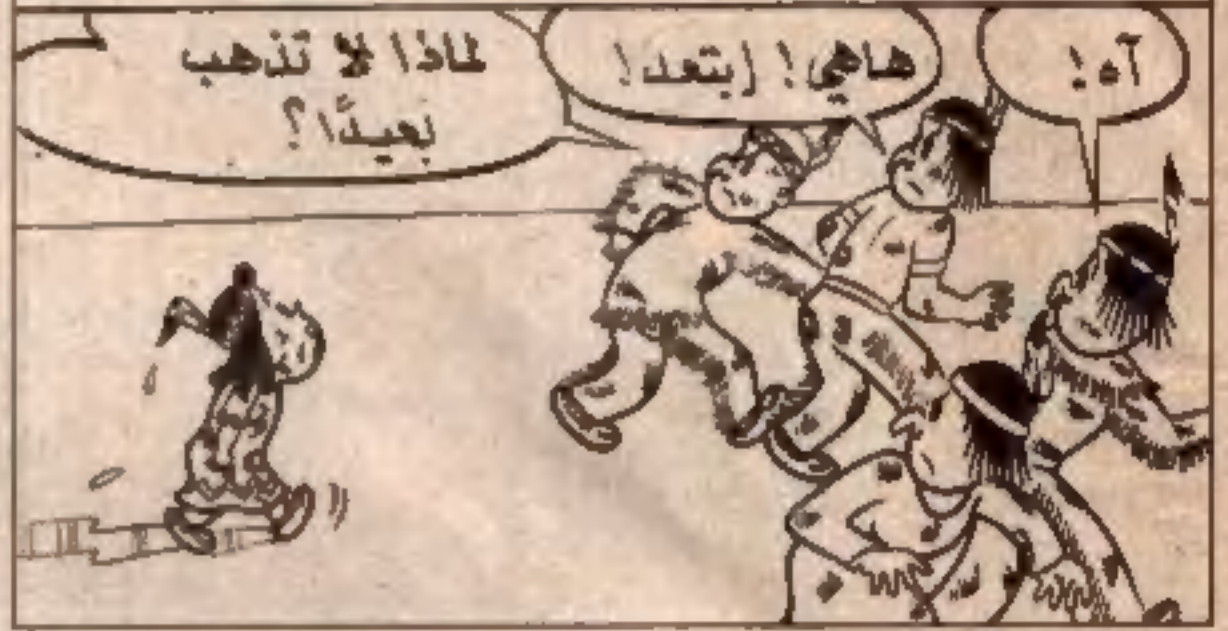 آه!
هاهي! إبتعد!
لماذا لا تذهب
بعيدًا؟